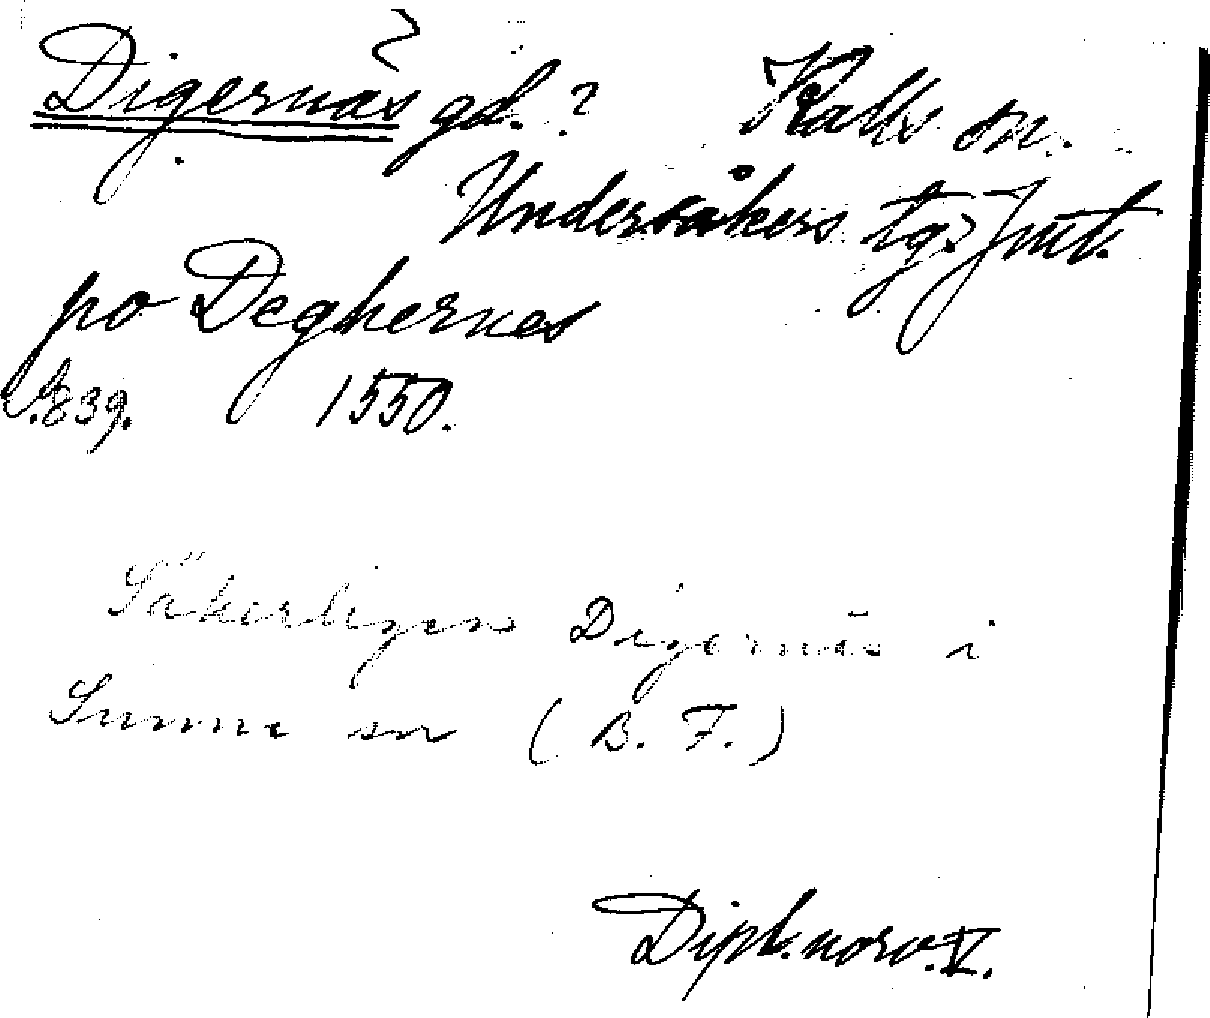 Digernäs gd.? Kalls sn.
Undersåkers tg. Jmt.
po Deghernes
s. 839. 1550.
Säkerligen Digernäs i
Sunne sn (B. F.)
Dipl. norv. V.